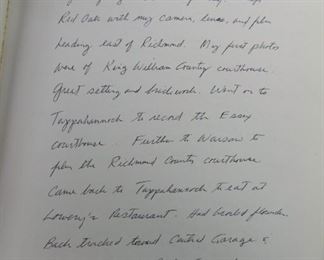 Red Oak with my camera, lens, and film
heading east of Richmond. My first photos
were of King William County courthouse.
Great setting and brickwork. Went on to
Tappahannock to record the Essex
courthouse. Further to Warsaw to
film the Richmond County courthouse
Came back to Tappahannock to eat at
Lowery's Restaurant. Had broiled flounder.
Back tracked toward Central Garage &